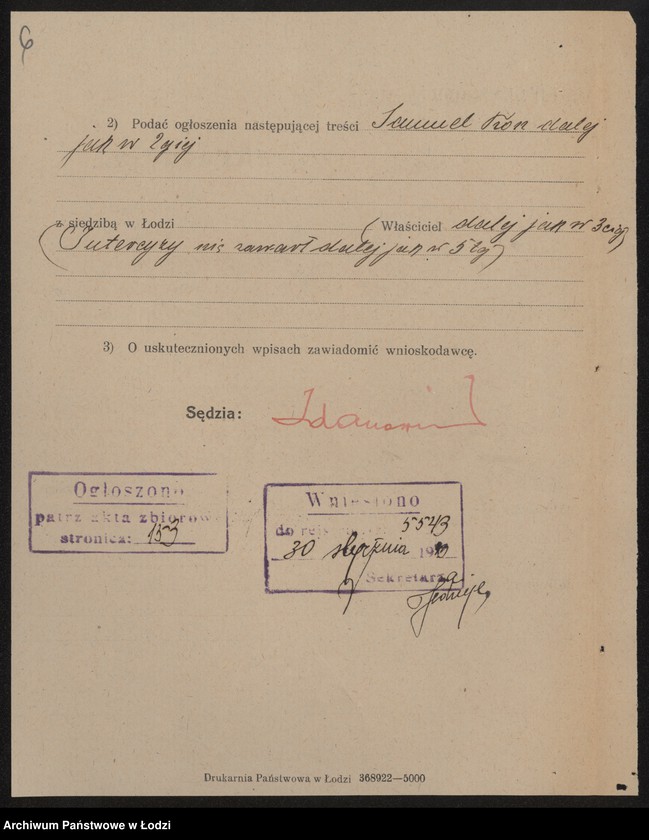 6
2) Podać ogłoszenia następującej treści Samuel Kon dalej
jak w 2giej
z siedzibą w Łodzi (Właściciel dalej jak w 3ciej)
(Intercyzy nie zawarł dalej jak w 5tej)
3) O uskutecznionych wpisach zawiadomić wnioskodawcę.
Sędzia:
Ogłoszono
patrz akta zbiorowe
stronica: 153
Wniesiono
do 5543
30 sierpnia 19
Sekretarz
Drukarnia Państwowa w Łodzi 368922—5000
Archiwum Państwowe w Łodzi